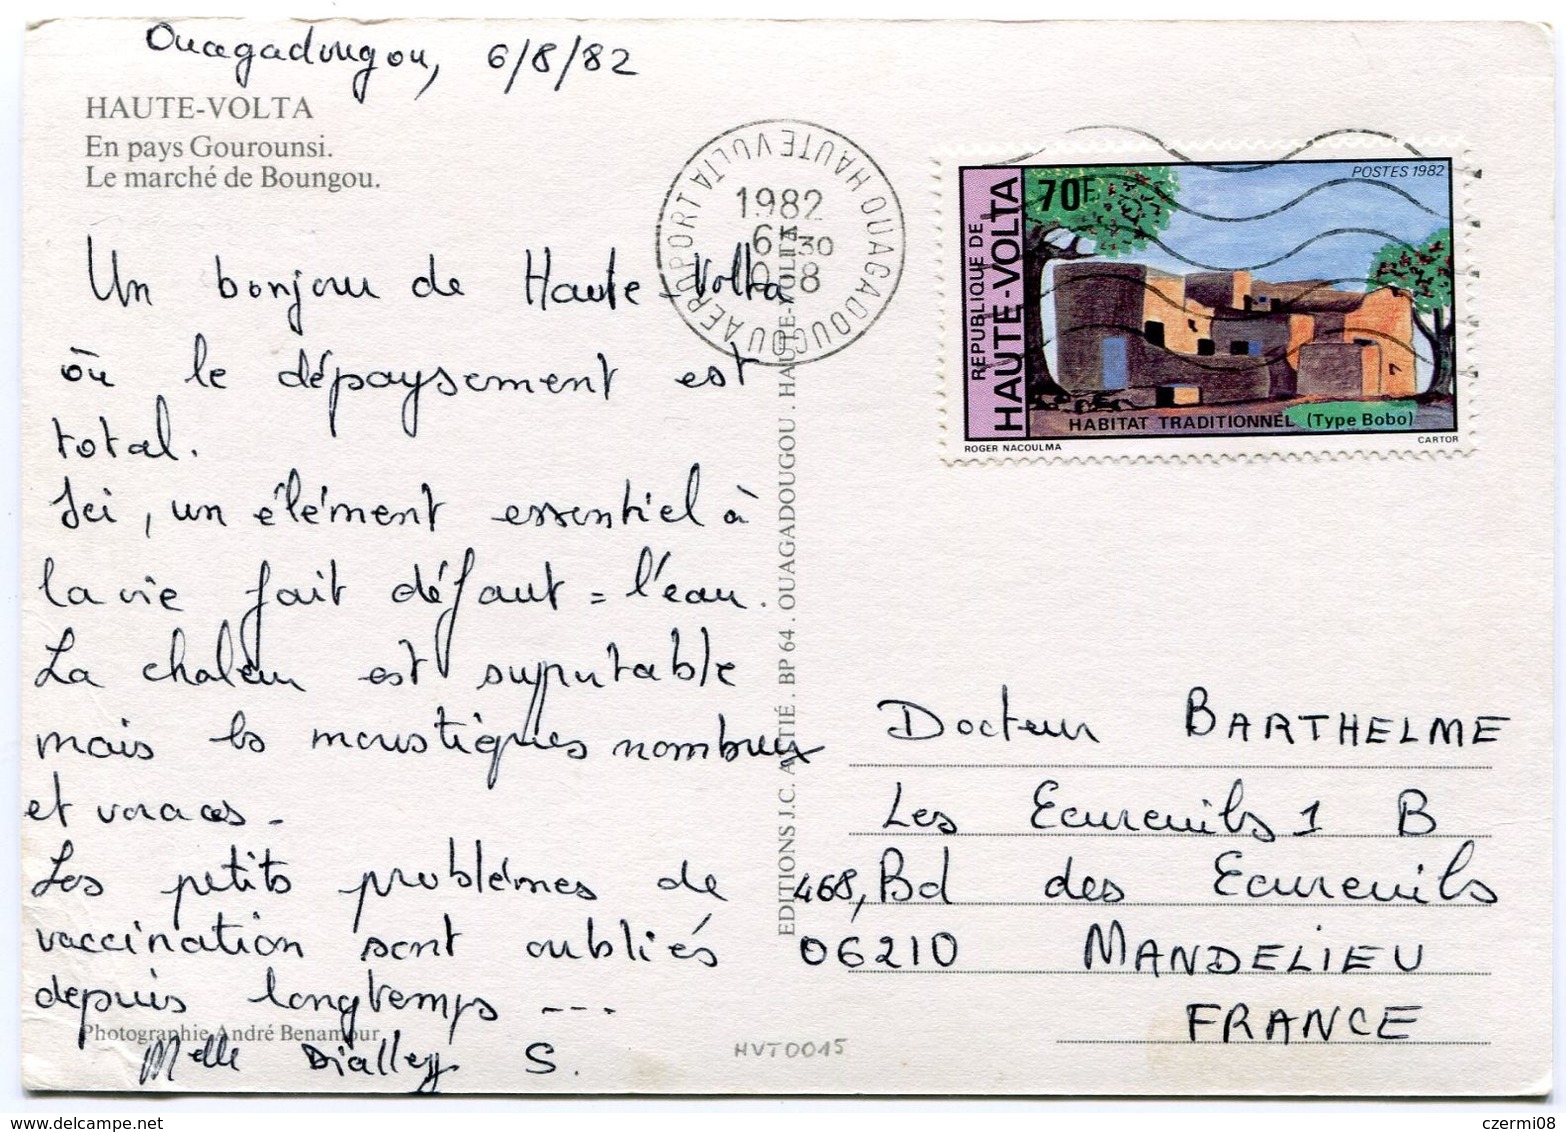 Ouagadougou, 6/8/82
HAUTE-VOLTA
En pays Gourounsi.
Le marché de Boungou.
Un bonjour de Haute-Volta
où le dépaysement est
total.
Ici, un élément essentiel à
la vie fait défaut = l'eau.
La chaleur est supportable
mais les moustiques nombreux
et voraces -
Les petits problèmes de
vaccination sont oubliés
depuis longtemps ---
Photographie André Benamour
Melle Dialley S.
HVT0015
EDITIONS J.C. ATTIÉ . BP 64 . OUAGADOUGOU . HAUTE-VOLTA
OUAGADOUGOU AEROPORT
HAUTE VOLTA
1982
6 30
8
REPUBLIQUE DE
HAUTE-VOLTA
70F
POSTES 1982
HABITAT TRADITIONNEL (Type Bobo)
ROGER NACOULMA
CARTOR
Docteur BARTHELME
Les Ecureuils 1 B
468, Bd des Ecureuils
06210 MANDELIEU
FRANCE
czermi08